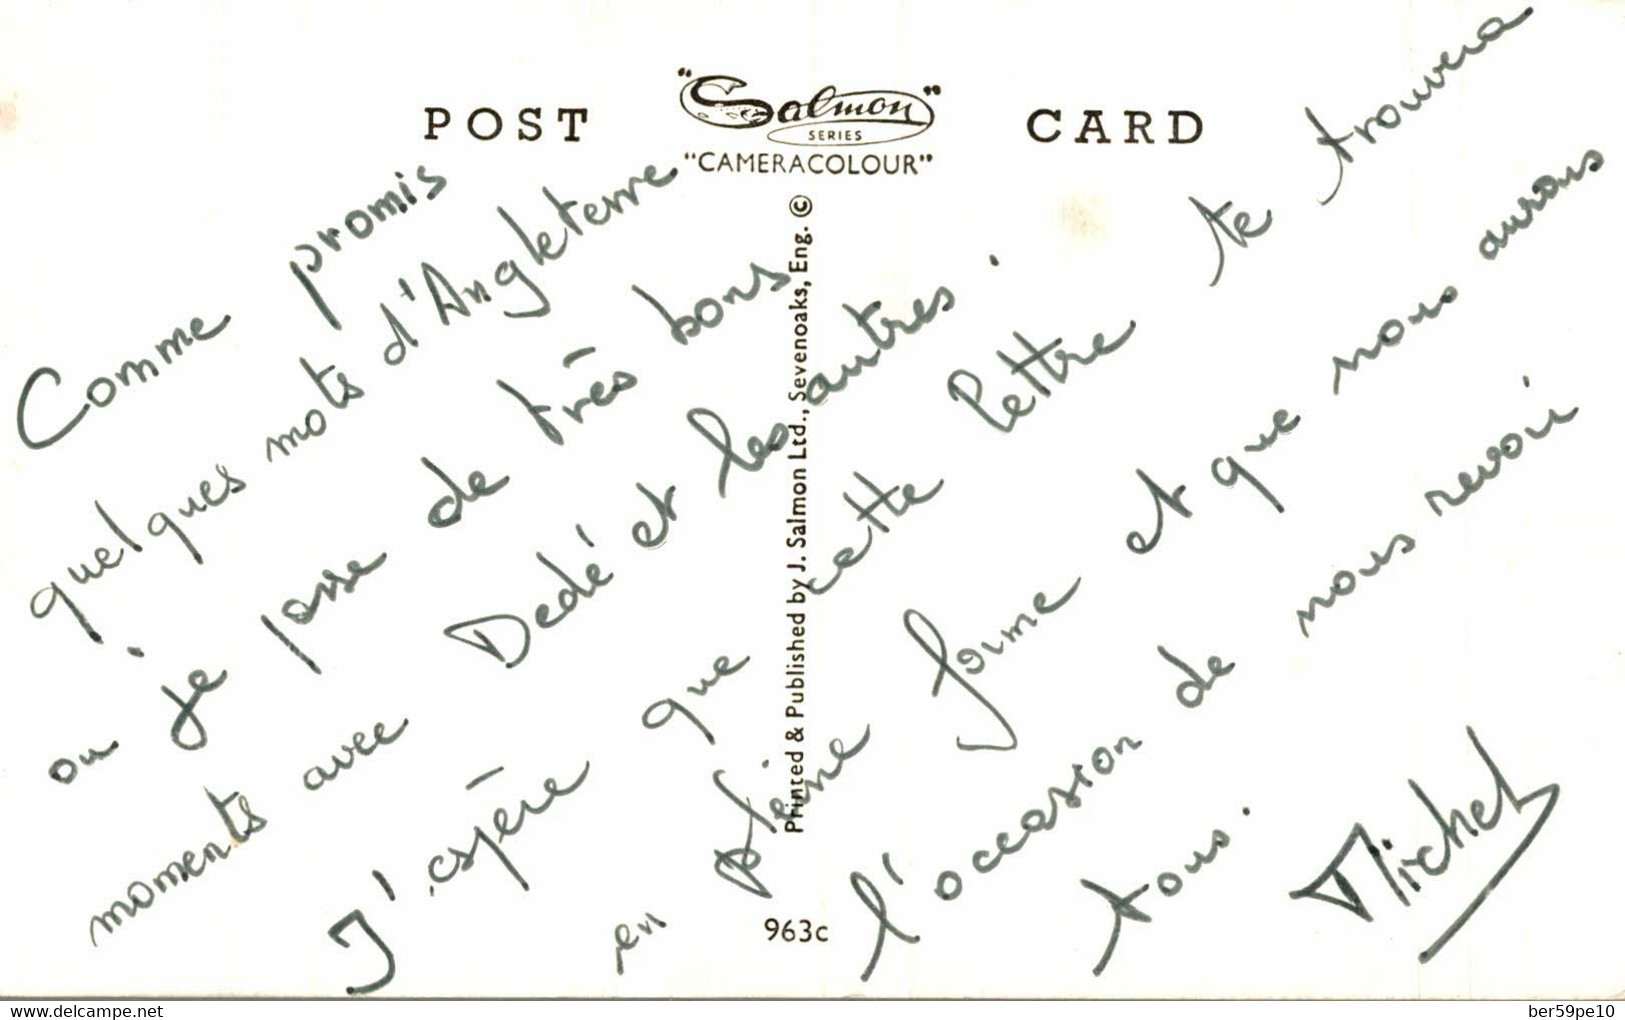 POST "Salmon" CARD
SERIES
"CAMERACOLOUR"
Printed & Published by J. Salmon Ltd., Sevenoaks, Eng. ©
963c
Comme promis
quelques mots d'Angleterre
ou je passe de très bons
moments avec Dedé et les autres.
J'espère que cette lettre te trouvera
en pleine forme et que nous aurons
l'occasion de nous revoir
tous.
Michel
www.delcampe.net
ber59pe10